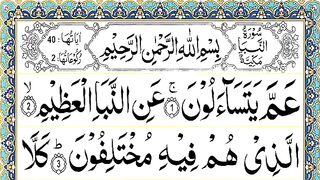 سُوْرَةُ النَّبَاِ مَكِّيَّةٌ
بِسْمِ اللّٰهِ الرَّحْمٰنِ الرَّحِيْمِ
اٰيَاتُهَا: 40
رُكُوْعَاتُهَا: 2
عَمَّ يَتَسَآءَلُوْنَ ۚ ﴿1﴾ عَنِ النَّبَاِ الْعَظِيْمِ ۙ ﴿2﴾
الَّذِيْ هُمْ فِيْهِ مُخْتَلِفُوْنَ ؕ ﴿3﴾ كَلَّا